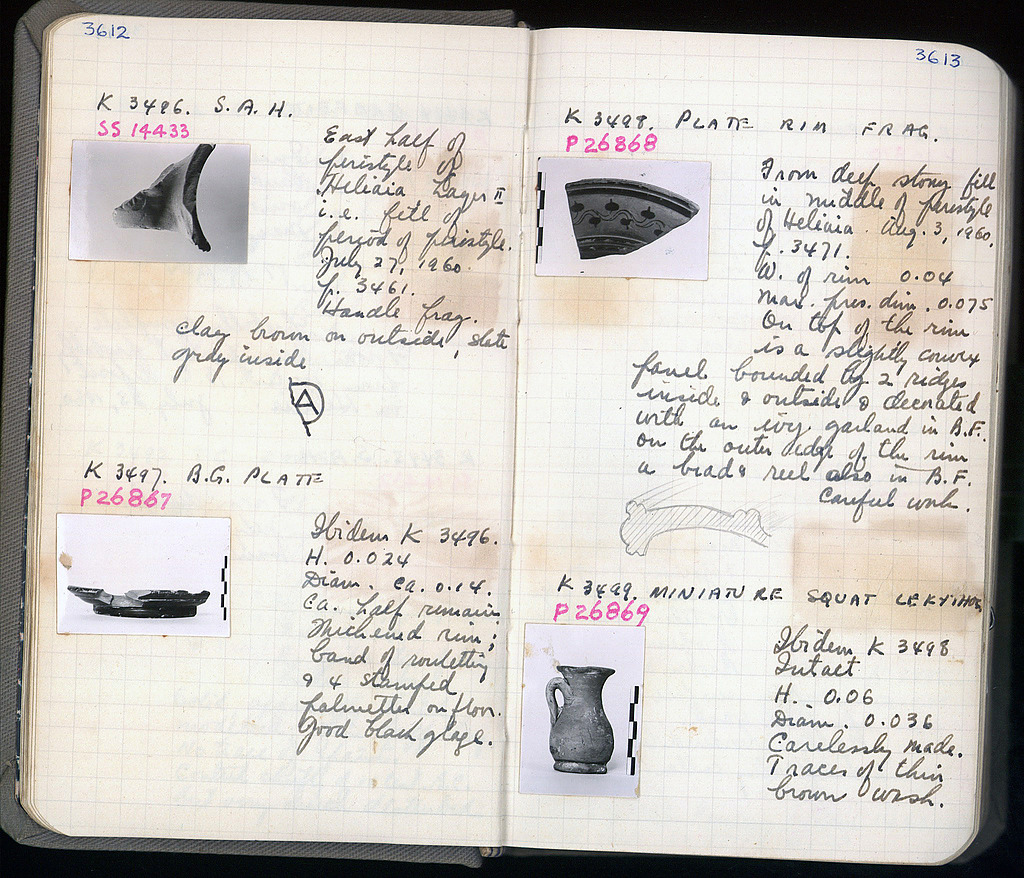 3612
K 3496. S.A.H.
SS 14433
East half of
peristyle of
Heliaia Layer II
i.e. fill of
period of peristyle.
July 27, 1960.
p. 3461.
Handle frag.
Clay brown on outside, slate
gray inside
A
K 3497. B.G. PLATE
P26867
Ibidem K 3496.
H. 0.024
Diam. ca. 0.14.
Ca. half remains
Thickened rim;
band of rouletting
& 4 stamped
palmettes on floor.
Good black glaze.
3613
K 3498. PLATE RIM FRAG.
P26868
From deep stony fill
in middle of peristyle
of Heliaia. Aug. 3, 1960.
p. 3471.
W. of rim 0.04
Max. pres. dim. 0.075
On top of the rim
is a slightly convex
panel bounded by 2 ridges
inside & outside & decorated
with an ivy garland in B.F.
on the outer edge of the rim
a bead & reel also in B.F.
Careful work.
K 3499. MINIATURE SQUAT LEKYTHOS
P26869
Ibidem K 3498
Intact
H. 0.06
Diam. 0.036
Carelessly made.
Traces of thin
brown wash.